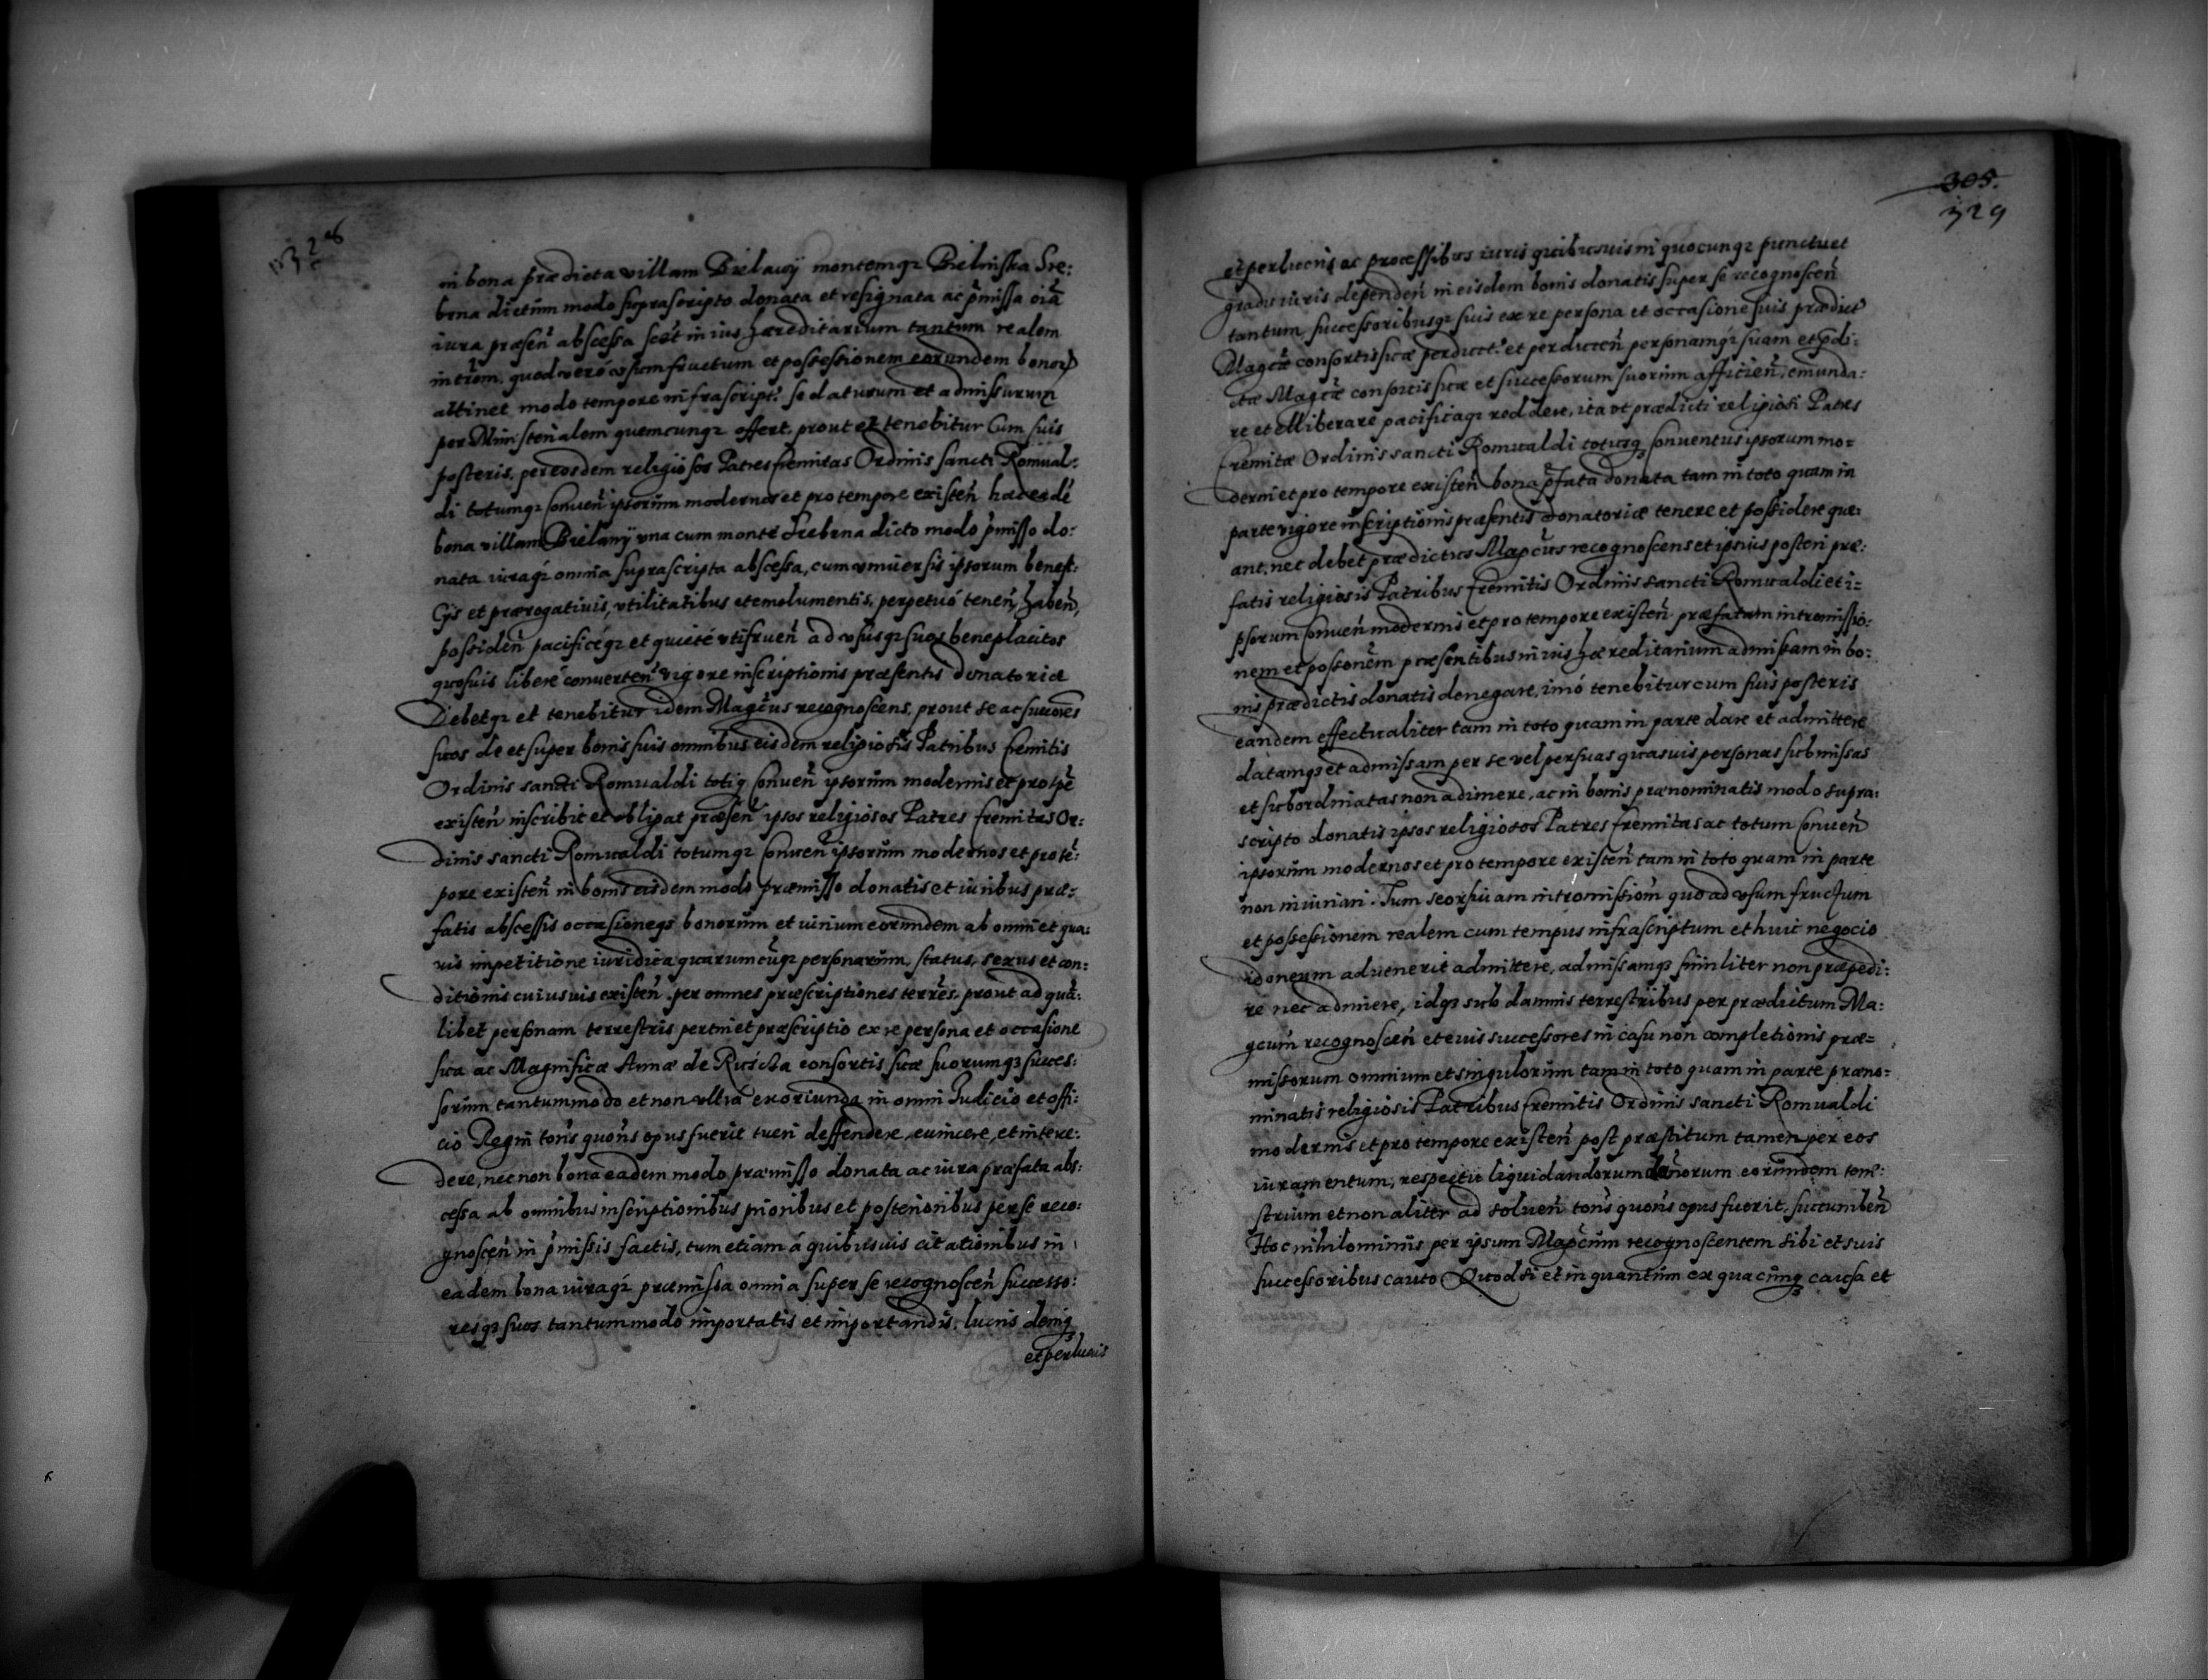 328
in bona prædicta villam Bielany montemqz Bielinska Sre:
brna dictum modo suprascripto donata et resignata ac p̃missa oĩa
iura præseñ abscessa scĩt in ius hæreditarium tantum realem
intrõm. quod verò usumfructum et possessionem eorundem bonorz
attinet modo tempore infrascript. se daturum et admissurum
per Ministerialem quemcunqz offert. prout et tenebitur Cum suis
posteris. per eosdem religiosos Patres Eremitas Ordinis sancti Romual:
di totumqz Conveñ ipsorum modernos et pro tempore existeñ hæc eadẽ
bona villam Bielany una cum monte Srebrna dicto modo p̃misso do:
nata iuraqz omnia suprascripta abscessa, cum universis ipsorum benefi:
cÿs et prærogativis, utilitatibus et emolumentis, perpetuò teneñ, habeñ,
possideñ pacificéqz et quietè utifrueñ ad ususqz suos beneplacitos
quosuis liberè converteñ vigore inscriptionis præsentis donatoriæ
Debetqz et tenebitur idem Magcũs recognoscens, prout se ac succores
suos de et super bonis suis omnibus eisdem religiosis Patribus Eremitis
Ordinis sancti Romualdi totiqz Conveñ ipsorum modernis et pro tpẽ
existeñ inscribit et obligat præseñ ipsos religiosos Patres Eremitas Or:
dinis sancti Romualdi totumqz Conveñ ipsorum modernos et pro tẽ:
pore existeñ in bonis eisdem modo præmisso donatis et iuribus præ:
fatis abscessis occasioneqz bonorum et iurium eorundem ab omni et qua:
vis impetitione iuridica quarumcũqz personarum, status, sexus et con:
ditionis cuiusuis existeñ. per omnes præscriptiones terrẽs. prout ad quã:
libet personam terrestris pertinet præscriptio ex re persona et occasione
sua ac Magnificæ Annæ de Ruścza consortis suæ suorumqz succes:
sorum tantummodo et non ultrà exoriunda in omni Iudicio et offi:
cio Regni toñs quoñs opus fuerit tueri deffendere, euincere, et interce:
dere, necnon bona eadem modo præmisso donata ac iura præfata abs:
cessa ab omnibus inscriptionibus prioribus et posterioribus per se reco:
gnosceñ in p̃missis factis, tum etiam á quibusuis citationibus in
eadem bona iuraqz præmissa omnia super se recognosceñ successo:
resqz suos tantummodo importatis et importandis. lucris deniqz
et perlucris
305.
329
et perlucris ac processibus iuris quibusuis in quocunqz punctu et
gradu iuris dependeñ in eisdem bonis donatis super se recognosceñ
tantum successoribusqz suis ex re persona et occasione suis prædict
Magcæ consortis suæ perduct. et perduceñ personamqz suam et p̃di:
ctæ Magcæ consortis suæ et successorum suorum afficieñ, emunda:
re et elliberare pacificaqz reddere, ita vt prædicti religiosi Patres
Eremitæ Ordinis sancti Romualdi totusqz Conventus ipsorum mo=
derni et pro tempore existeñ bona p̃fata donata tam in toto quam in
parte vigore inscriptionis præsentis donatoriæ tenere et possidere que:
ant. nec debet prædictus Magcũs recognoscens et ipsius posteri præ:
fatis religiosis Patribus Eremitis Ordinis sancti Romualdi et i=
psorum Conveñ modernis et pro tempore existeñ præfatam intromissio:
nem et possonẽm præsentibus in ius hæreditarium admissam in bo:
nis prædictis donatis denegare, imò tenebitur cum suis posteris
eandem effectualiter tam in toto quam in parte dare et admittere
datamqz et admissam per se vel per suas quasuis personas submissas
et subordinatas non adimere, ac in bonis prænominatis modo supra:
scripto donatis ipsos religiosos Patres Eremitas ac totum Conveñ
ipsorum modernos et pro tempore existeñ tam in toto quam in parte
non iniuriari. Tum seorsiuam intromissiom̃ quo ad usum fructum
et possessionem realem cum tempus infrascriptum et huic negocio
idoneum aduenerit admittere, admissamqz similiter non præpedi:
re nec adimere, idqz sub damnis terrestribus per prædictum Ma:
gcum recognosceñ et eius successores in casu non completionis præ=
missorum omnium et singulorum tam in toto quam in parte præno=
minatis religiosis Patribus Eremitis Ordinis sancti Romualdi
modernis et pro tempore existeñ post præstitum tamen per eos
iuramentum, respectu liquidandorum dam̃norum eorundem terre:
strium et non aliter ad solueñ toñs quoñs opus fuerit, succumbeñ
Hoc nihilominus per ipsum Magcũm recognoscentem sibi et suis
successoribus cauto Quod si et in quantum ex quacunqz causa et